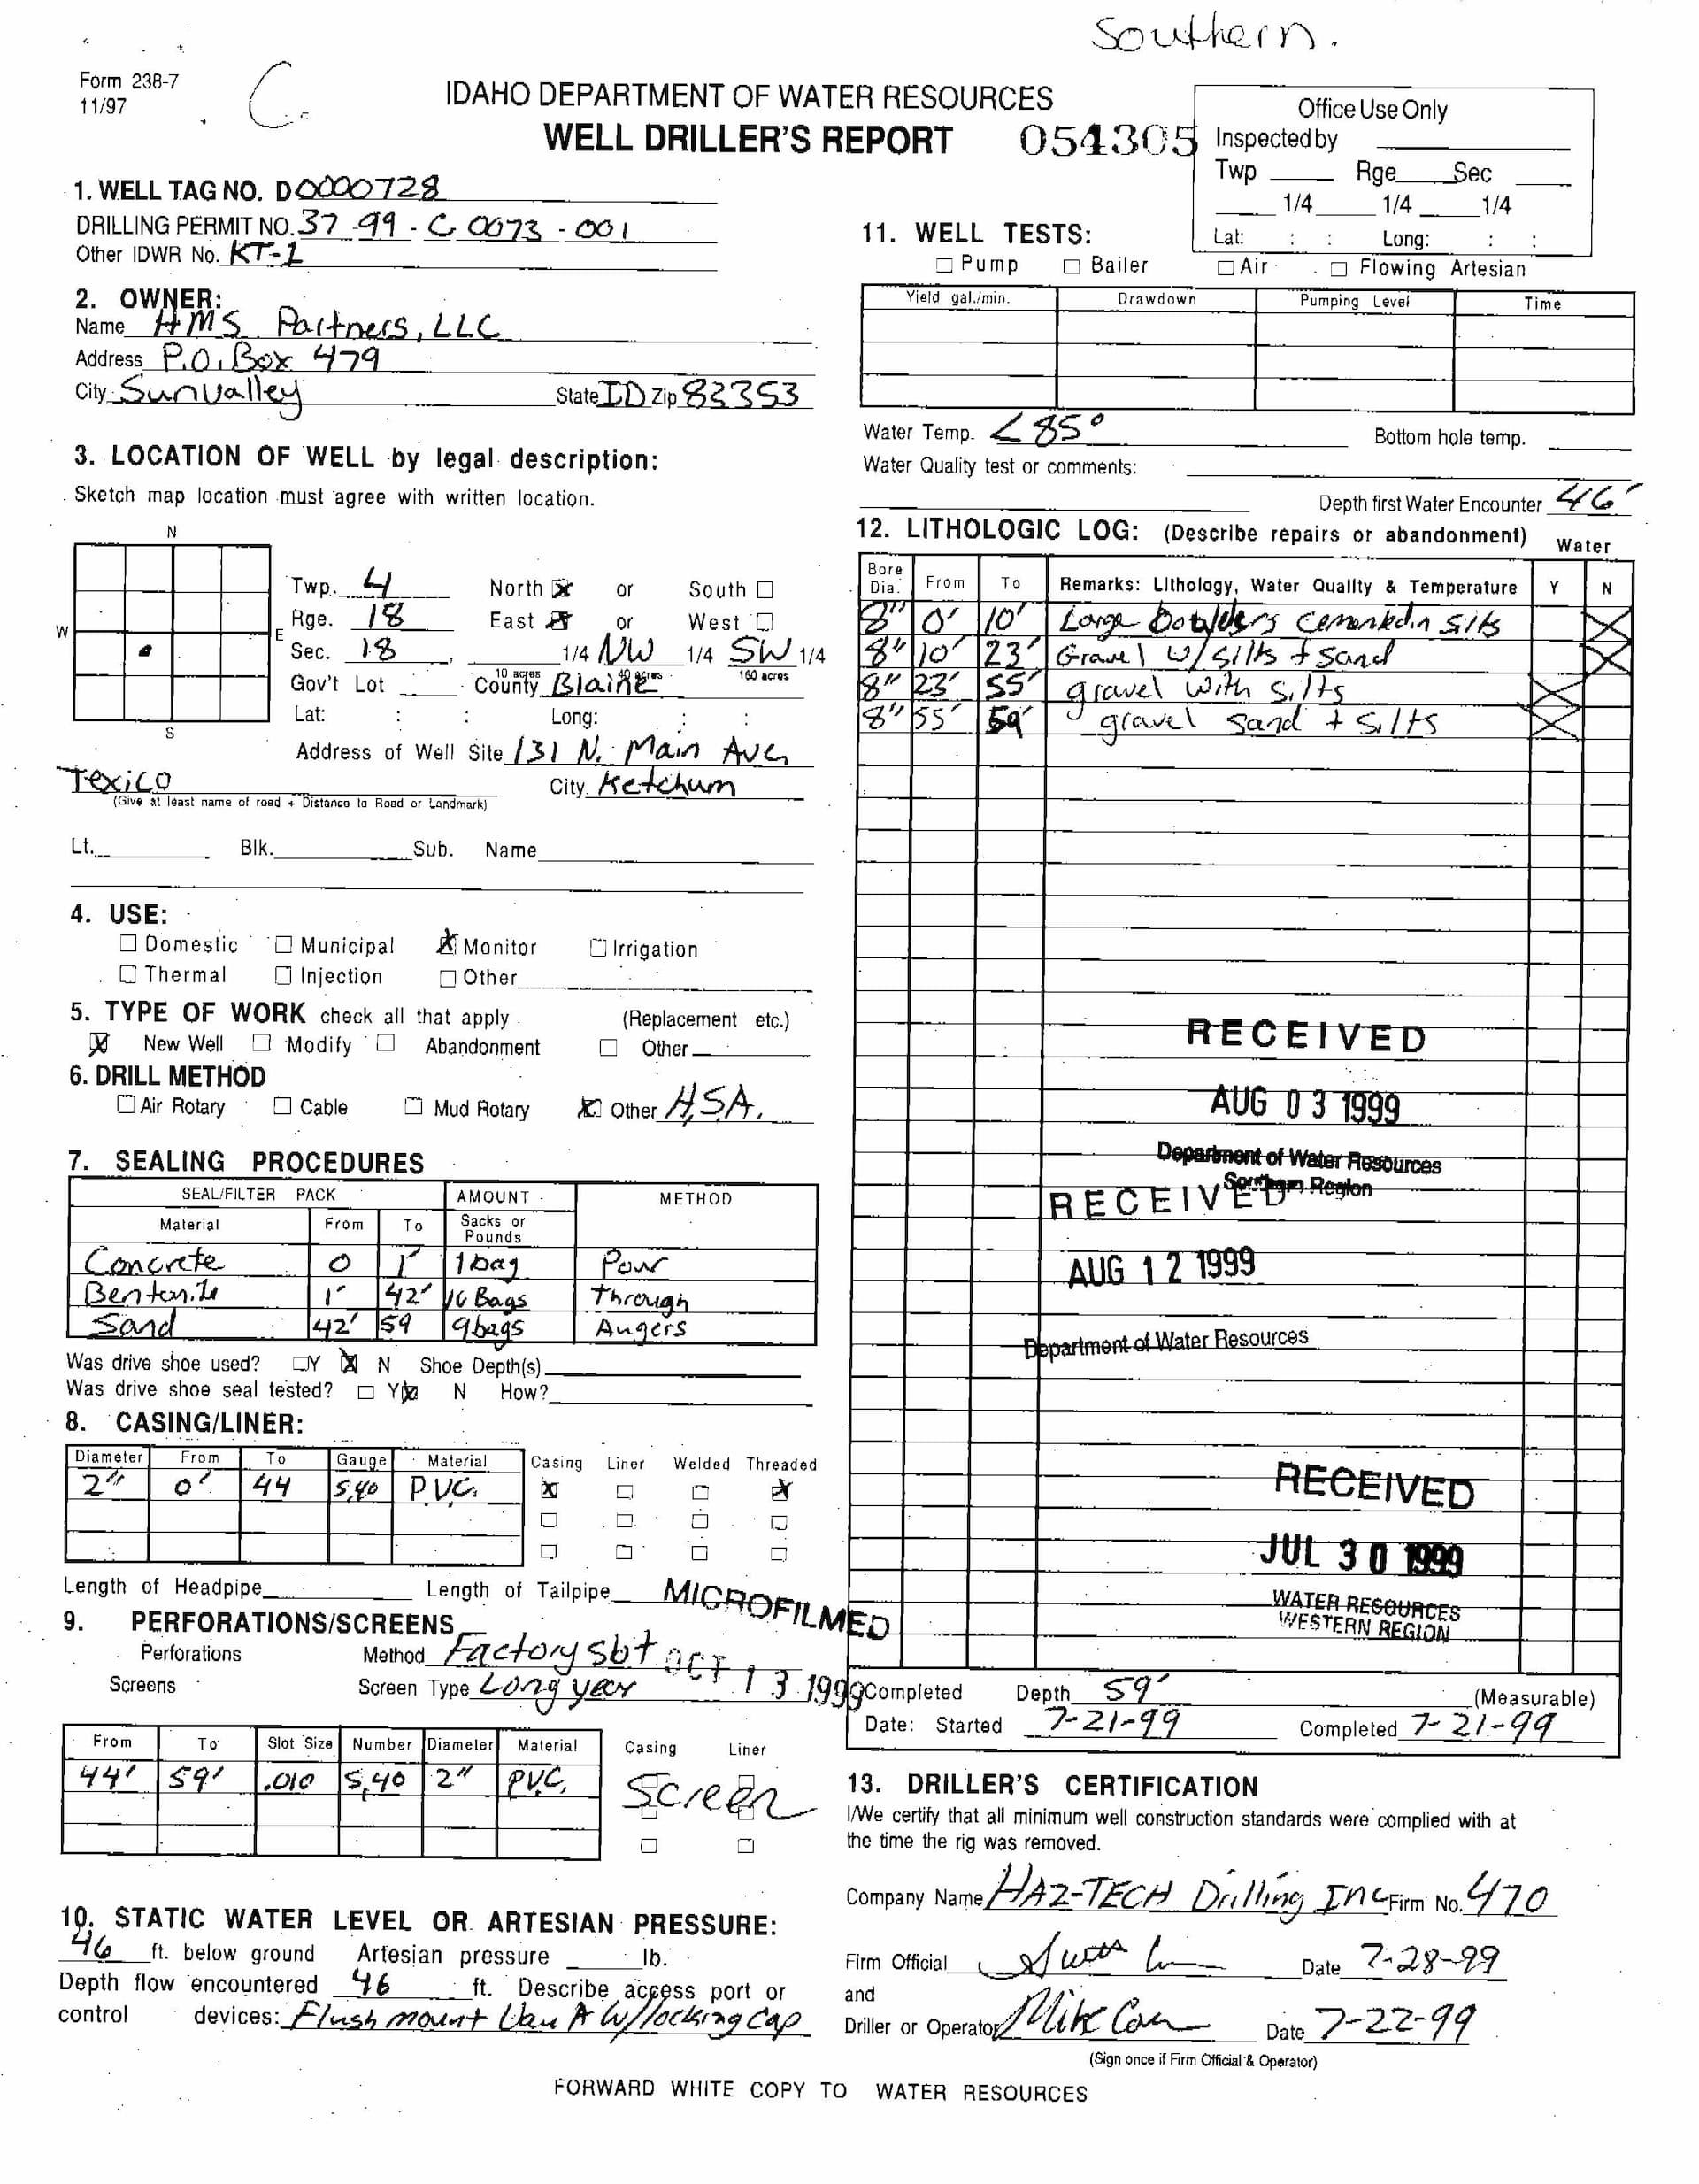 Southern.
Form 238-7
11/97
C.
IDAHO DEPARTMENT OF WATER RESOURCES
WELL DRILLER'S REPORT 054305
Office Use Only
Inspected by
Twp Rge Sec
1/4 1/4 1/4
Lat: : : Long: : :
1. WELL TAG NO. D0000728
DRILLING PERMIT NO. 37-99-C 0073-001
Other IDWR No. KT-1
2. OWNER:
Name HMS Partners, LLC
Address P.O. Box 479
City Sunvalley State ID Zip 83353
3. LOCATION OF WELL by legal description:
Sketch map location must agree with written location.
N
W
E
S
Twp. 4 North X or South
Rge. 18 East X or West
Sec. 18, 1/4 NW 1/4 SW 1/4
10 acres 40 acres 160 acres
Gov't Lot County Blaine
Lat: : : Long: : :
Address of Well Site 131 N. Main Ave
Texico City Ketchum
(Give at least name of road + Distance to Road or Landmark)
Lt. Blk. Sub. Name
4. USE:
Domestic Municipal X Monitor Irrigation
Thermal Injection Other
5. TYPE OF WORK check all that apply (Replacement etc.)
X New Well Modify Abandonment Other
6. DRILL METHOD
Air Rotary Cable Mud Rotary X Other H.S.A.
7. SEALING PROCEDURES
SEAL/FILTER PACK AMOUNT METHOD
Material From To Sacks or Pounds
Concrete 0 1' 1 bag Pour
Bentonite 1' 42' 16 Bags through
Sand 42' 59 9 bags Augers
Was drive shoe used? Y X N Shoe Depth(s)
Was drive shoe seal tested? Y X N How?
8. CASING/LINER:
Diameter From To Gauge Material Casing Liner Welded Threaded
2" 0' 44 S,40 PVC. X X
Length of Headpipe Length of Tailpipe
MICROFILMED
OCT 13 1999
9. PERFORATIONS/SCREENS
Perforations Method Factory slot
Screens Screen Type Longyear
From To Slot Size Number Diameter Material Casing Liner
44' 59' .010 S,40 2" PVC, Screen
10. STATIC WATER LEVEL OR ARTESIAN PRESSURE:
46 ft. below ground Artesian pressure lb.
Depth flow encountered 46 ft. Describe access port or
control devices: Flush mount Vault W/locking cap
11. WELL TESTS:
Pump Bailer Air Flowing Artesian
Yield gal./min. Drawdown Pumping Level Time
Water Temp. < 85° Bottom hole temp.
Water Quality test or comments:
Depth first Water Encounter 46'
12. LITHOLOGIC LOG: (Describe repairs or abandonment) Water
Bore Dia. From To Remarks: Lithology, Water Quality & Temperature Y N
8" 0' 10' Large boulders cemented in silts X
8" 10' 23' Gravel w/ silts + sand X
8" 23' 55' gravel with silts X
8" 55' 59' gravel sand + silts X
RECEIVED
AUG 03 1999
Department of Water Resources
Southern Region
RECEIVED
AUG 12 1999
Department of Water Resources
RECEIVED
JUL 30 1999
WATER RESOURCES
WESTERN REGION
Completed Depth 59' (Measurable)
Date: Started 7-21-99 Completed 7-21-99
13. DRILLER'S CERTIFICATION
I/We certify that all minimum well construction standards were complied with at
the time the rig was removed.
Company Name HAZ-TECH Drilling Inc Firm No. 470
Firm Official Date 7-28-99
and
Driller or Operator Mike Date 7-22-99
(Sign once if Firm Official & Operator)
FORWARD WHITE COPY TO WATER RESOURCES